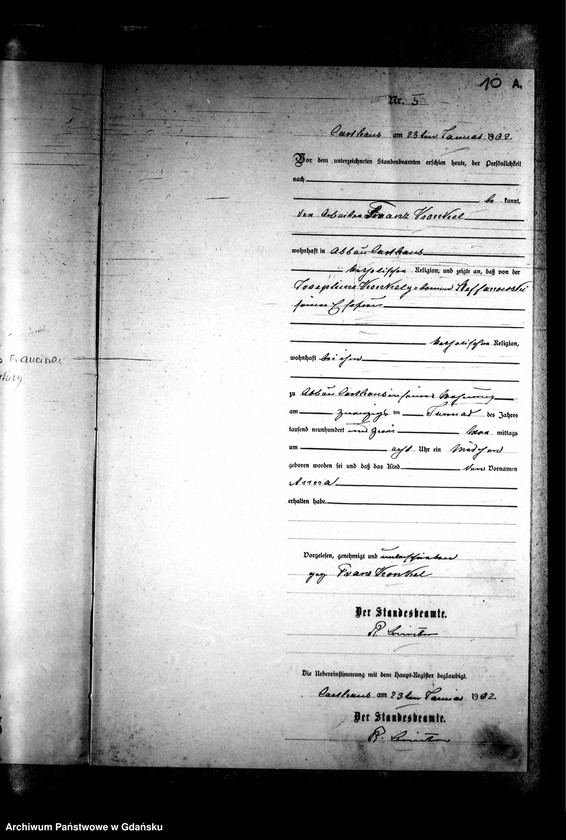 10 A.
Nr. 5
Carthaus am 23ten Januar 1902.
Vor dem unterzeichneten Standesbeamten erschien heute, der Persönlichkeit
nach
be kannt,
der Arbeiter Franz Kronkel
wohnhaft in Abbau Carthaus
katholischer Religion, und zeigte an, daß von der
Josephine Kronkel geborenen
seiner Ehefrau
katholischer Religion,
wohnhaft bei ihm
zu Abbau Carthaus in seiner Wohnung
am zwanzigsten Januar des Jahres
tausend neunhundert und zwei Vor mittags
um acht Uhr ein Mädchen
geboren worden sei und daß das Kind den Vornamen
Anna
erhalten habe.
Vorgelesen, genehmigt und unterschrieben
gez. Franz Kronkel
Der Standesbeamte.
R.
Die Uebereinstimmung mit dem Haupt-Register beglaubigt.
Carthaus am 23ten Januar 1902.
Der Standesbeamte.
R.
Archiwum Państwowe w Gdańsku